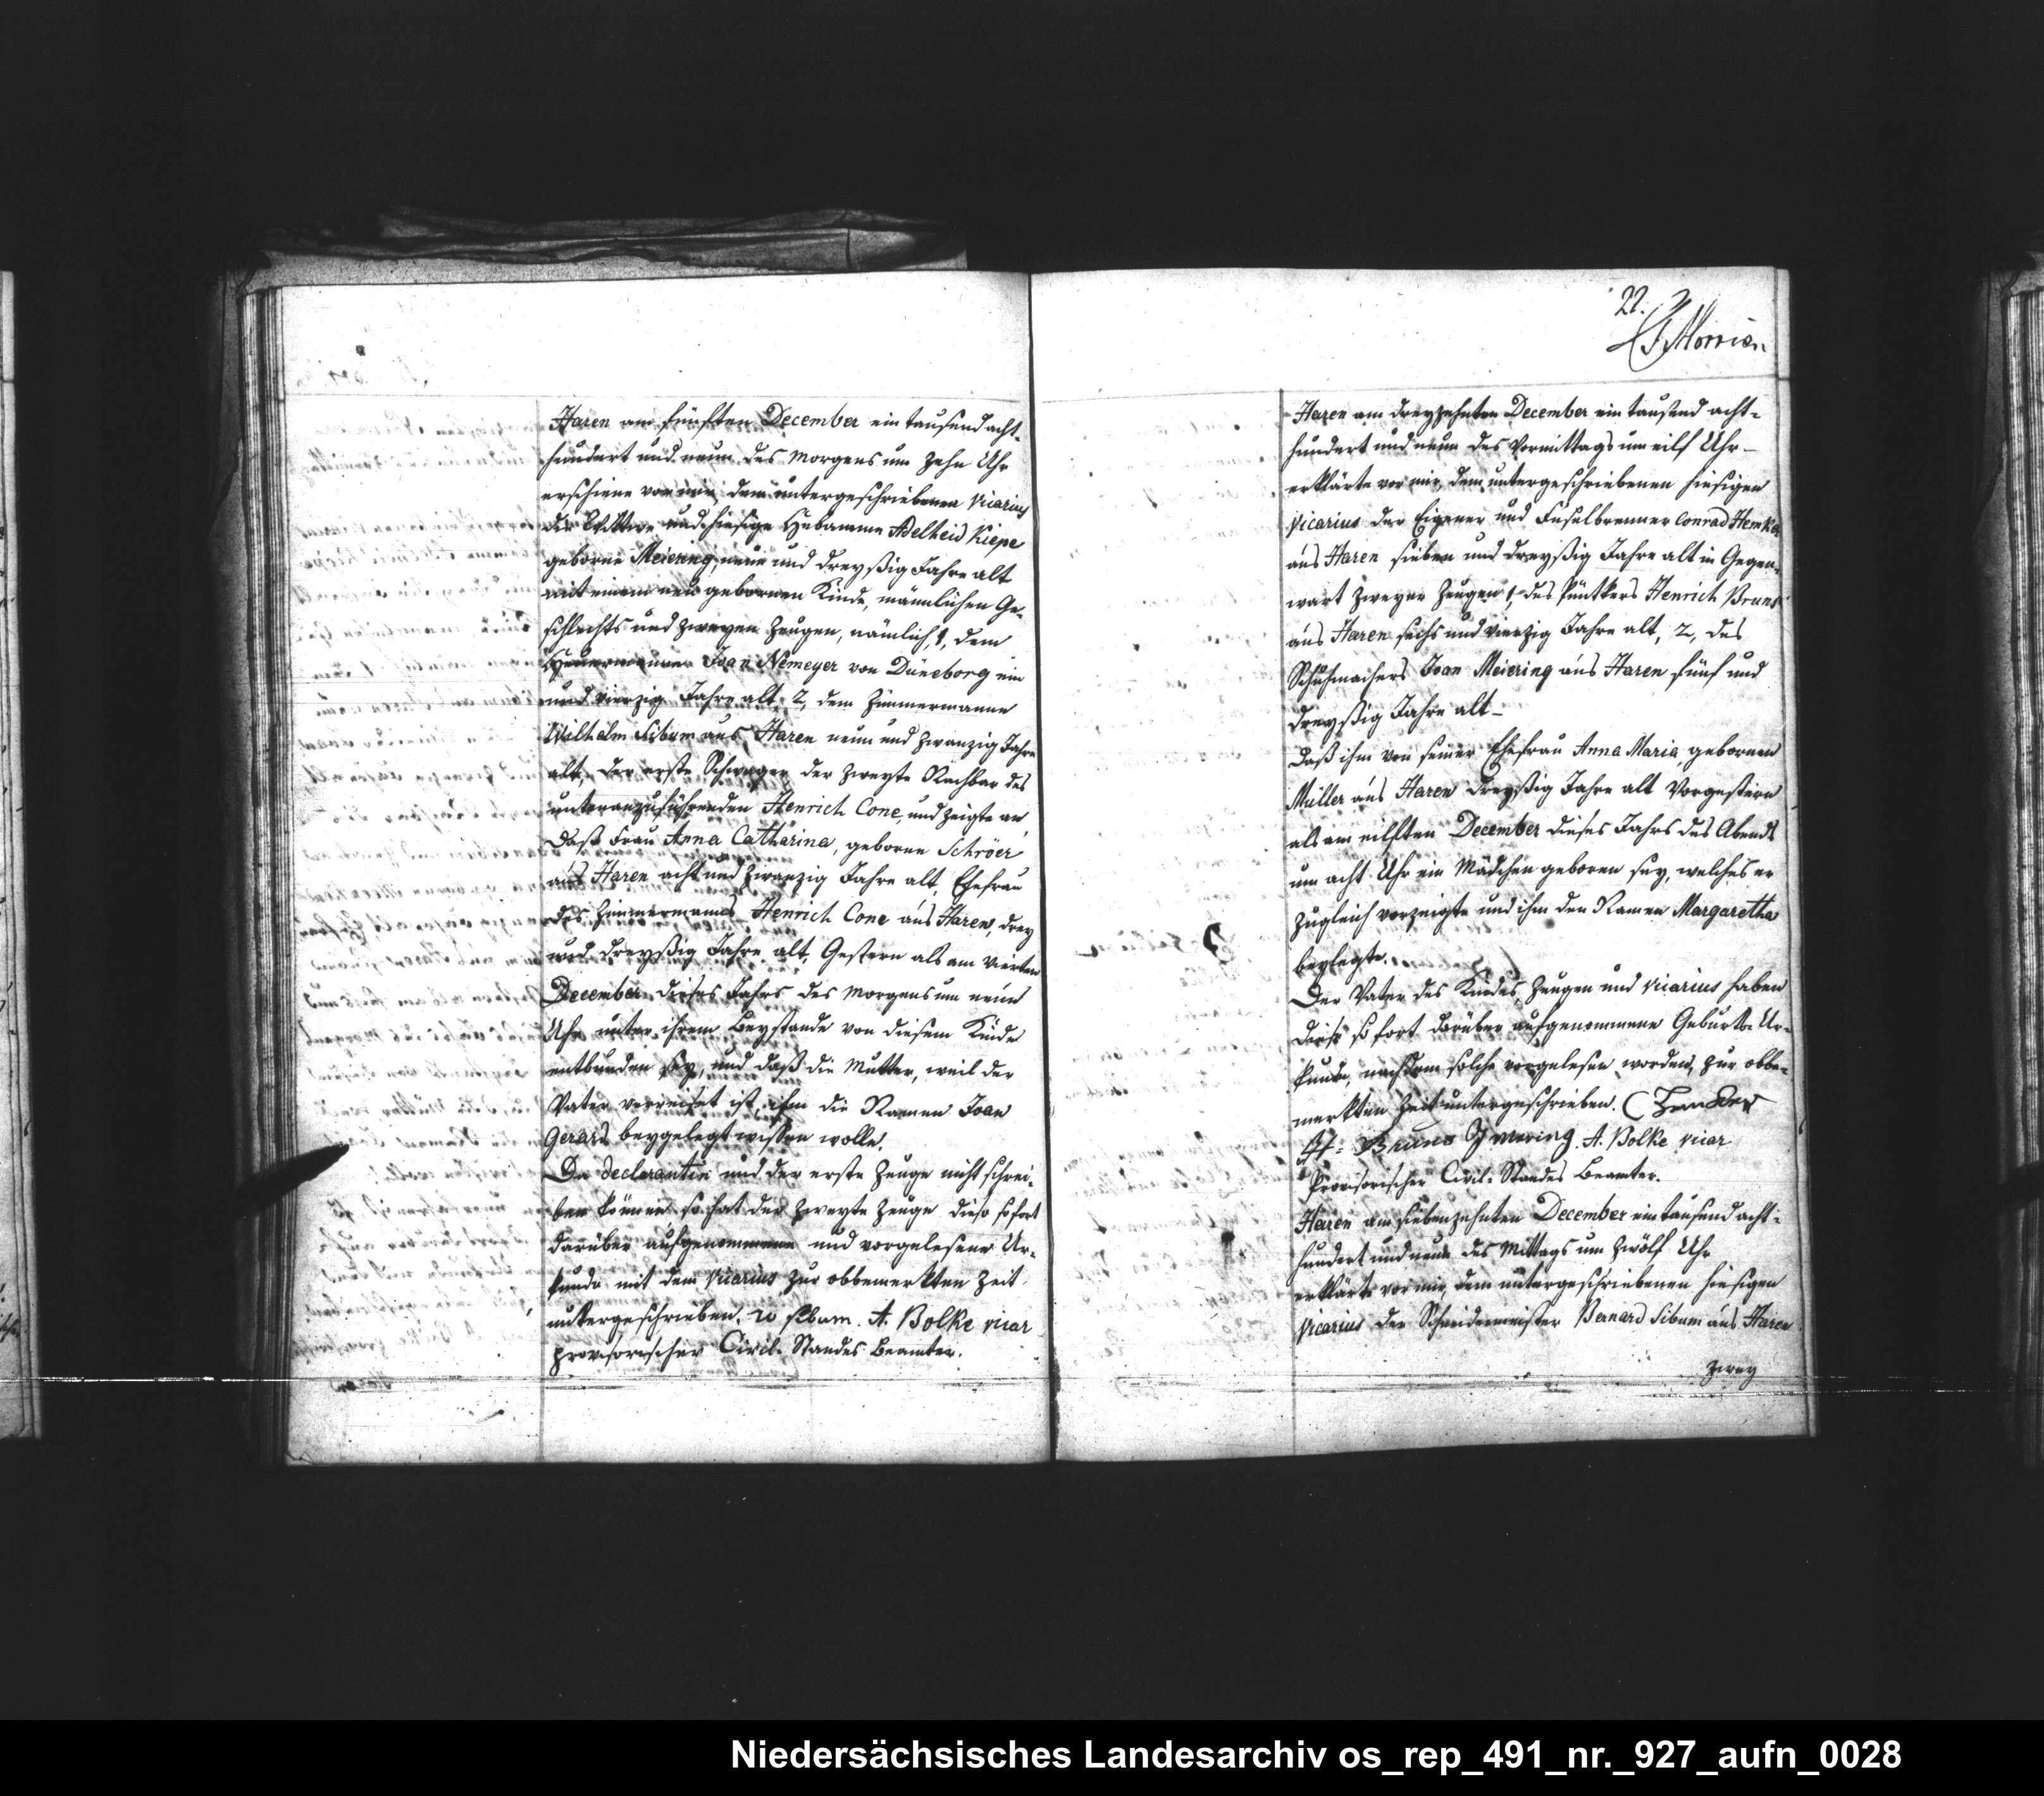 Haren am fünften December ein tausend acht-
hundert und neun des Morgens um zehn Uhr
erschiene vor mir, dem untergeschriebenen Vicarius
die Wittwe und hiesige Hebamme Adelheid Kiepe
geborne Meiering, neun und dreyßig Jahre alt
mit einem neu gebornen Kinde, männlichen Ge-
schlechts und zweyen Zeugen, nämlich, 1, dem
Heuermanne Joan Nemeyer von Düneborg ein
und vierzig Jahre alt, 2, dem Zimmermanne
Wilhelm Sibum aus Haren neun und zwanzig Jahre
alt, der erste Schwager, der zweyte Nachbar des
unteranzuführenden Henrich Cone, und zeigte an
Daß Frau Anna Catharina, geborne Schröer
aus Haren acht und zwanzig Jahre alt, Ehefrau
des Zimmermanns Henrich Cone aus Haren, drey
und dreyßig Jahre alt, Gestern als am vierten
December dieses Jahrs des Morgens um neun
Uhr unter ihrem Beystande von diesem Kinde
entbunden sey, und daß die Mutter, weil der
Vater verreiset ist, ihm die Namen Joan
Gerard beygelegt wissen wolle.
Da Declarantin und der erste Zeuge nicht schrei-
ben können so hat der zweyte Zeuge diese sofort
darüber aufgenommene und vorgelesene Ur-
kunde mit dem Vicarius zur obbemerkten Zeit
untergeschrieben. W Sibum. A. Bolke vicar
provisorischer Civil-Standes Beamter.
22.
Morrien
Haren am dreyzehnten December ein tausend acht-
hundert und neun des Vormittags um eilf Uhr –
erklärte vor mir, dem untergeschriebenen hiesigen
Vicarius der Eigener und Fuselbrenner Conrad Hemker
aus Haren sieben und dreyßig Jahre alt in Gegen-
wart zweyer Zeugen 1, des Püntkers Henrich Bruns
aus Haren sechs und vierzig Jahre alt, 2, des
Schuhmachers Joan Meiering aus Haren fünf und
dreyßig Jahre alt –
Daß ihm von seiner Ehefrau Anna Maria, gebornen
Müller aus Haren dreyßig Jahre alt Vorgestern
als am eilften December dieses Jahrs des Abends
um acht Uhr ein Mädchen geboren sey, welches er
zugleich vorzeigte und ihm den Namen Margaretha
beylegte.
Der Vater des Kindes, Zeugen und Vicarius haben
diese sofort darüber aufgenommene Geburts Ur-
kunde, nachdem solche vorgelesen worden, zur obbe-
merkten Zeit untergeschrieben. C Hemker
H Bruns J Meiring. A. Bolke vicar
Provisorischer Civil-Standes Beamter.
Haren am siebenzehnten December ein tausend acht-
hundert und neun des Mittags um zwölf Uhr
erklärte vor mir, dem untergeschriebenen hiesigen
Vicarius der Schneidermeister Bernard Sibum aus Haren
zwey
Niedersächsisches Landesarchiv os_rep_491_nr._927_aufn_0028